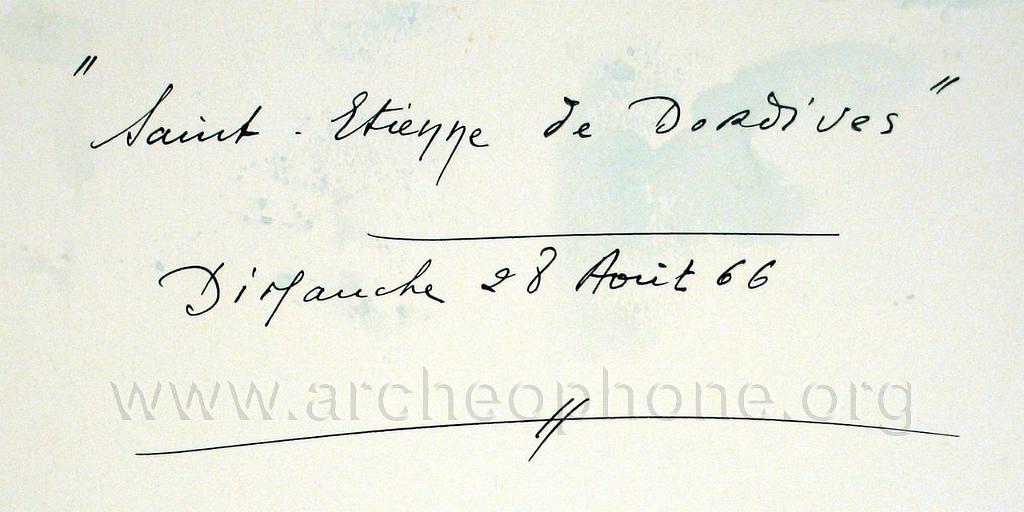 " Saint-Etienne de Dordives "
Dimanche 28 Août 66
www.archeophone.org